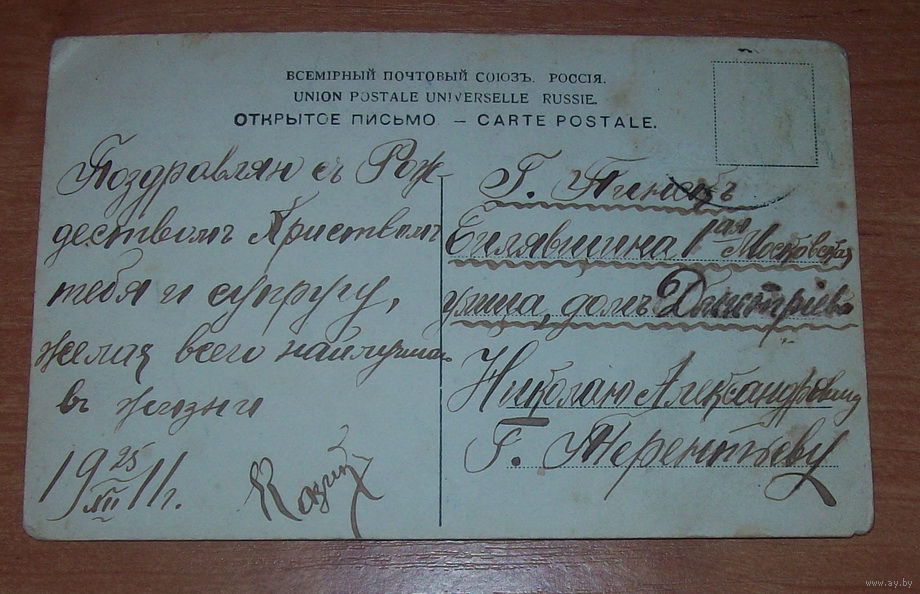 ВСЕМІРНЫЙ ПОЧТОВЫЙ СОЮЗЪ. РОССІЯ.
UNION POSTALE UNIVERSELLE RUSSIE.
ОТКРЫТОЕ ПИСЬМО. — CARTE POSTALE.
Поздравляю съ Рож-
дествомъ Христовомъ
тебя и супругу,
желая всего наилучша
въ жизни
19 25/XII 11 г.
Г. Пинскъ
1ая Московская
улица, домъ
Николаю Александровичу
Г. Терентьеву
www.ay.by